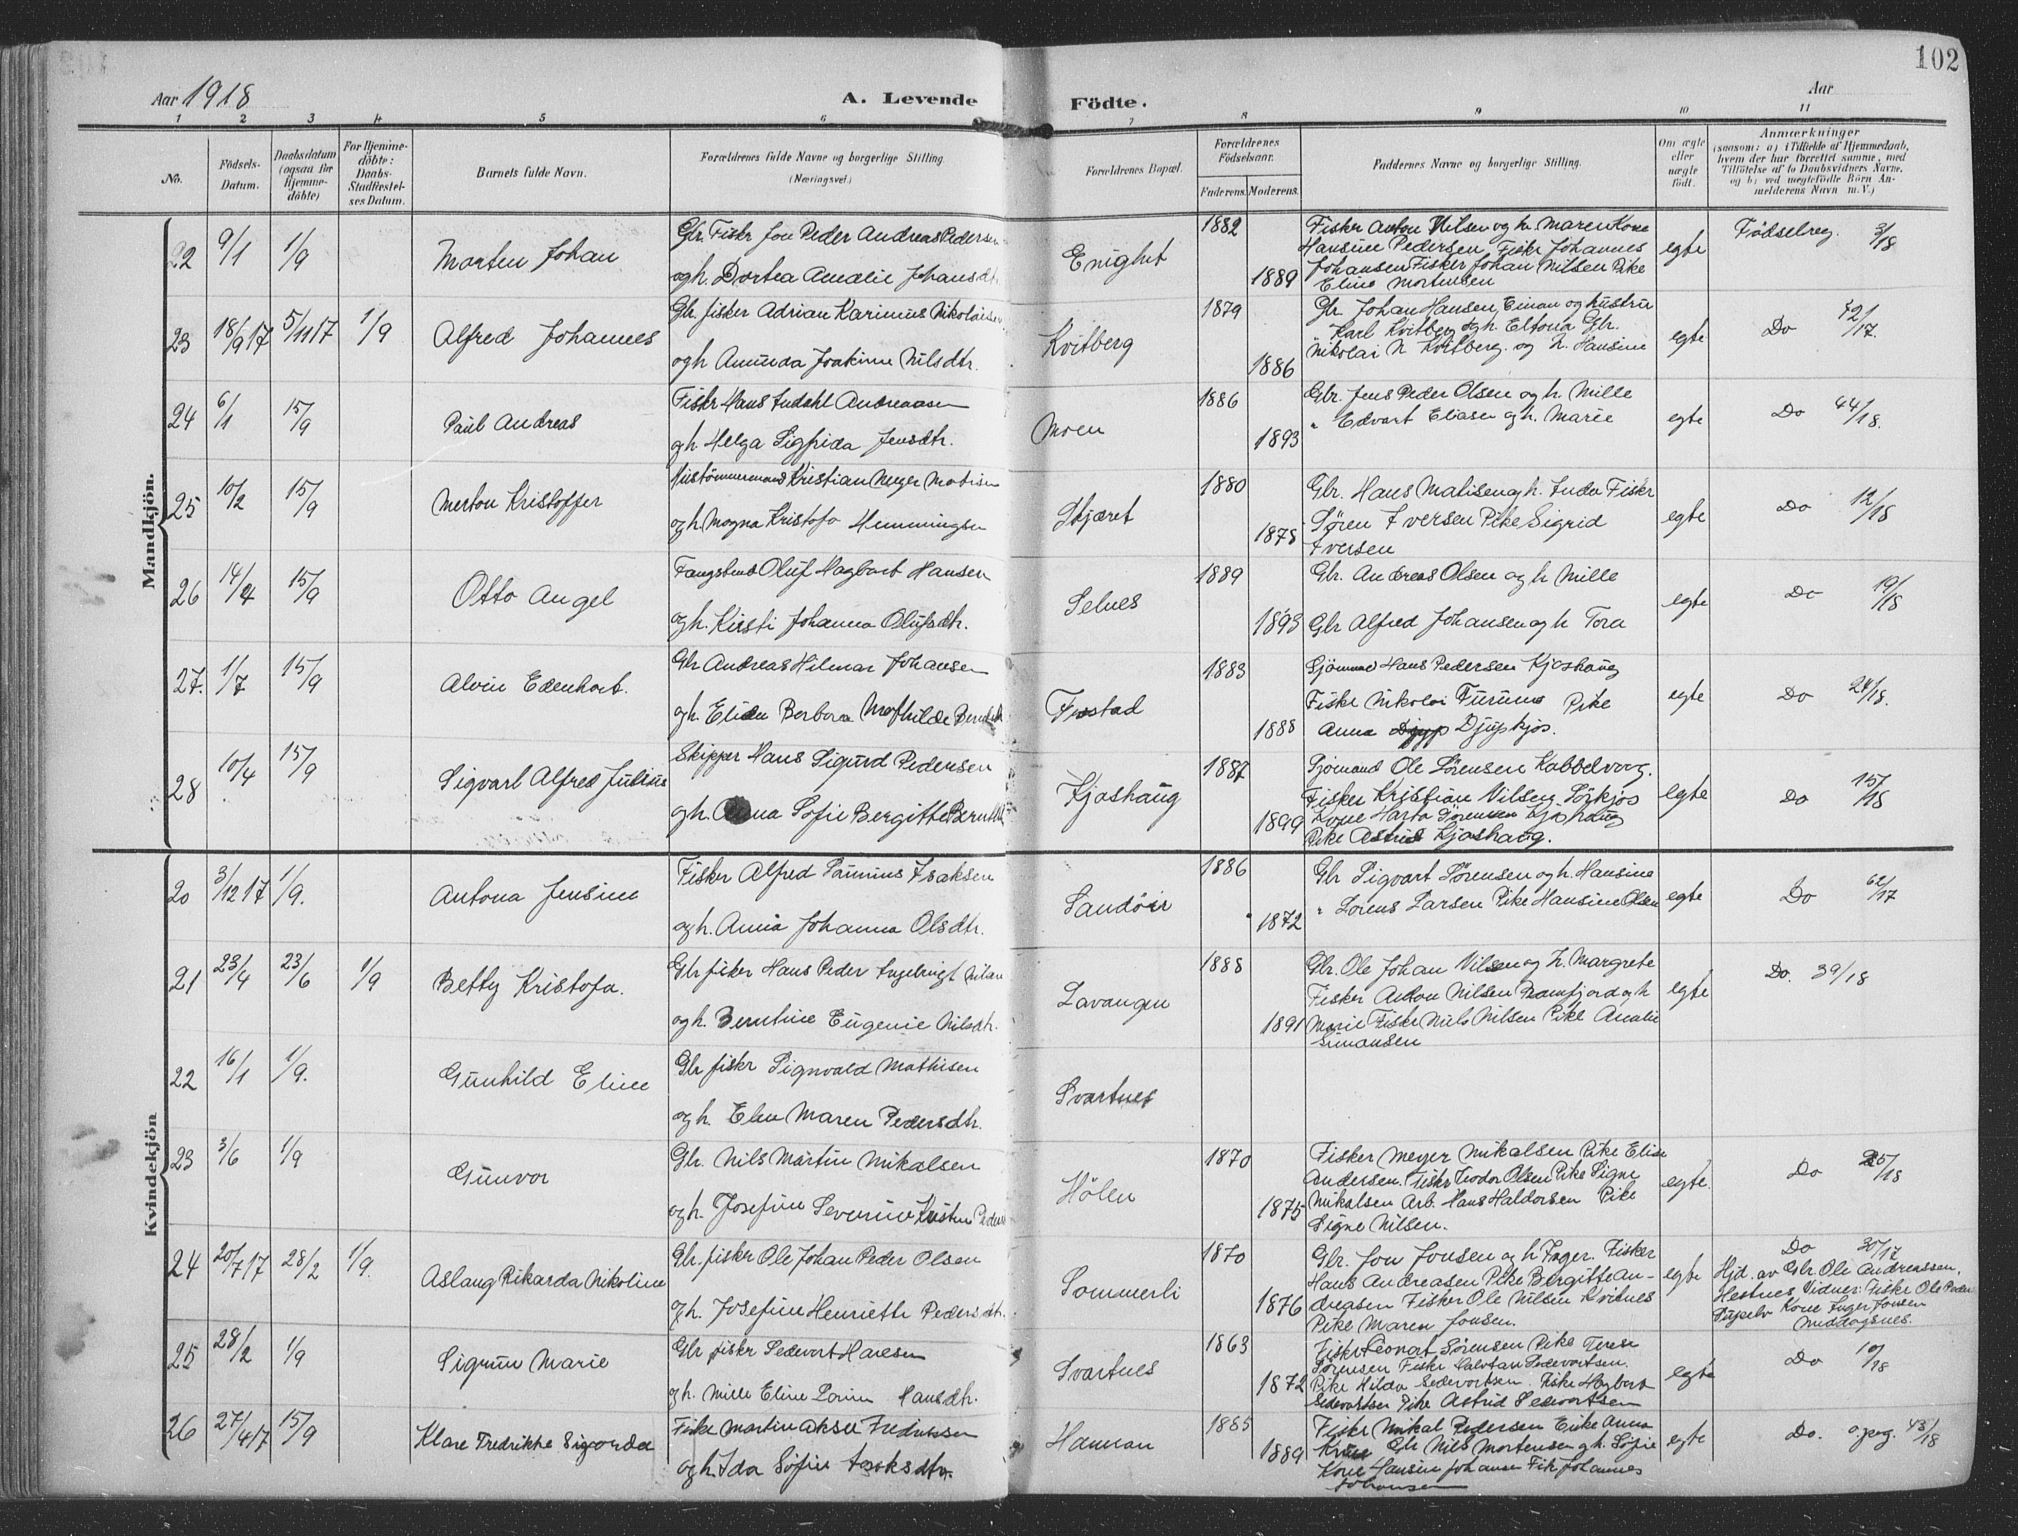 102
Aar 1918
A. Levende
Födte.
Aar
1 2 3 4 5 6 7 8 9 10 11
No.
Födsels-Datum.
Daabsdatum (ogsaa for Hjemme-döbte)
For Hjemme-döbte: Daabs-Stadfæstel-ses Datum.
Barnets fulde Navn.
Forældrenes fulde Navne og borgerlige Stilling. (Næringsvei)
Forældrenes Bopæl.
Forældrenes Födselsaar.
Faderens. Moderens.
Faddernes Navne og borgerlige Stilling.
Om ægte eller uægte födt.
Anmærkninger
(saasom: a) i Tilfælde af Hjemmedaab, hvem der har forrettet samme, med Tilföielse af to Daabsvidners Navne, og b) ved uægtefödte Börn An-melderens Navn m. V.)
Mandkjön.
22 9/1 1/9 Morten Johan
Gbr. Fiskr Jon Peder Andreas Pedersen
og h. Dortea Amalie Johansdtr.
Enighet 1882 1889
Fisker Anton Nilsen og h. Maren Kone
Hansine Pedersen Fiskr Johannes
Johansen Fisker Johan Nilsen Pike
Eline Mortensen
egte Födselreg. 3/18
23 18/9 17 5/11 17 1/9 Alfred Johannes
Gbr. fisker Adrian Karinius Nikolaisen
og h Amunda Joakime Nilsdtr.
Kvitberg 1879 1886
Gbr Johan Hansen, Einan og hustru
" Karl Kvitberg og h. Eltona Gbr.
Nikolai N. Kvitberg. og h. Hansine
egte Do 42/17.
24 6/1 15/9 Paul Andreas
Fiskr Hans Indahl Andreassen
og h. Helga Sigfrida Jensdtr.
Moen 1886 1893
Gbr. Jens Peder Olsen og h. Mille
" Edvart Eliasen og h. Marie
egte Do 44/18.
25 10/2 15/9 Merton Kristoffer
Hustömmermand Kristian Meyer Matisen
og h. Magna Kristofa Hemmingsen
Skjæret 1880 1878
Gbr. Hans Matisen og h. Inda Fiskr
Sören Iversen Pike Sigrid
Iversen
egte Do 12/18
26 14/4 15/9 Otto Angel
Fangstmd Oluf Hagbart Hansen
og h. Kirsti Johanna Olufsdtr.
Selnes 1889 1893
Gbr. Andreas Olsen og h Mille
Gbr Alfred Johansen og h Tora
egte Do 19/18
27. 1/7 15/9 Alvin Edenhart.
Gbr Andreas Hilmar Johansen
og h. Eliden Barbara Mathilde
Fostad 1883 1888
Sjömand Hans Pedersen Kjoshaug
Fiske Nikolai Furumo Pike
Anna Djupskjos.
egte Do 24/18.
28 10/4 15/9 Sigvart Alfred Julius
Skipper Hans Sigurd Pedersen
og h. Anna Sofie Bergitte
Kjoshaug 1887 1899
Sjömand Ole Sörensen Kabbelvaag.
Fisker Kristian Nilsen Sörkjos
Kone Harta Sörensen Kjoshaug
Pike Astrid Kjoshaug.
egte Do 15/18
Kvindekjön
20 3/12 17 1/9. Antona Jensine
Fisker Alfred Paunius Isaksen
og h. Anna Johanna Olsdtr.
Sandöir 1886 1872
Gbr Sigvart Sörensen og h. Hansine
" Lorens Larsen Pike Hansine Olsen
egte Do 62/17
21 23/4 23/6 1/9 Betty Kristofa.
Gbr fisker Hans Peder Ingebrigt Nilsen
og h. Berntine Eugenie Nilsdtr.
Lavangen 1888 1891
Gbr. Ole Johan Nilsen og h. Margrete
Fisker Anton Nilsen Ramfjord og h
Marie Fiskr Nils Nilsen Pike Amalie
Simonsen
egte Do. 39/18
22 16/1 1/9. Gunhild Eline
Gbr fiskr Signvald Mathisen
og h. Elen Maren Pedersdtr.
Svartnes
23 3/6 1/9 Gunvor
Gbr. Nils Martin Mikalsen
og h. Josefine Severine Kristine
Hölen 1870 1875
Fisker Meyer Mikalsen Pike Elise
Andersen. Fiskr Teodor Olsen Pike Signe
Mikalsen Arb. Hans Haldorsen Pike
Signe Nilsen.
egte. Do 25/18
24 20/7 17 28/2 1/9. Aslaug Rikarda Nikoline
Gbr. fisker Ole Johan Peder Olsen
og h. Josefine Henriette Pedersdtr.
Sommerli 1870 1876
Gbr. Jon Jonsen og h Inger. Fisker
Hans Andreasen Pike Bergitte An-
dreasen Fisker Ole Nilsen Kvitnes
Pike Maren Jonsen.
egte Do 30/17
Hjd. av Gbr Ole Andreassen,
Hestnes Vidner: Fisker Ole Peder
Kone Inger Jonsen
Middagsnes.
25 28/2 1/9 Sigrun Marie
Gbr fiskr Sedevart Hansen
og h. Mille Eline Hansdtr.
Svartnes 1863 1872
Fiskr Leonart Sörensen Pike Terese
Sörensen Fiskr Halvdan Sedevartsen.
Pike Hilda Sedevartsen. Fiske Hagbart
Sedevartsen Pike Astrid Sedevartsen
egte Do 10/18
26 27/4 17 15/9 Klare Fredrikke Sigvorda
Fiske Martin Aksel Fredriksen
og h. Ida Sofie Isaksdtr.
Hannan 1885 1889
Fiskr Mikal Pedersen Enke Anna
Gbr Nils Mortensen og h. Sofie
Kone Hansin Johansen Fisk Johannes
Johansen
egte Do. 43/18